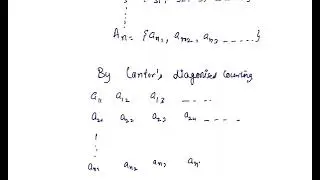 A_n = {a_n1, a_n2, a_n3 -----}
By Cantor's diagonised counting
a_11 a_12 a_13 ----
a_21 a_22 a_23 a_24 -----
a_n1 a_n2 a_n3 a_n